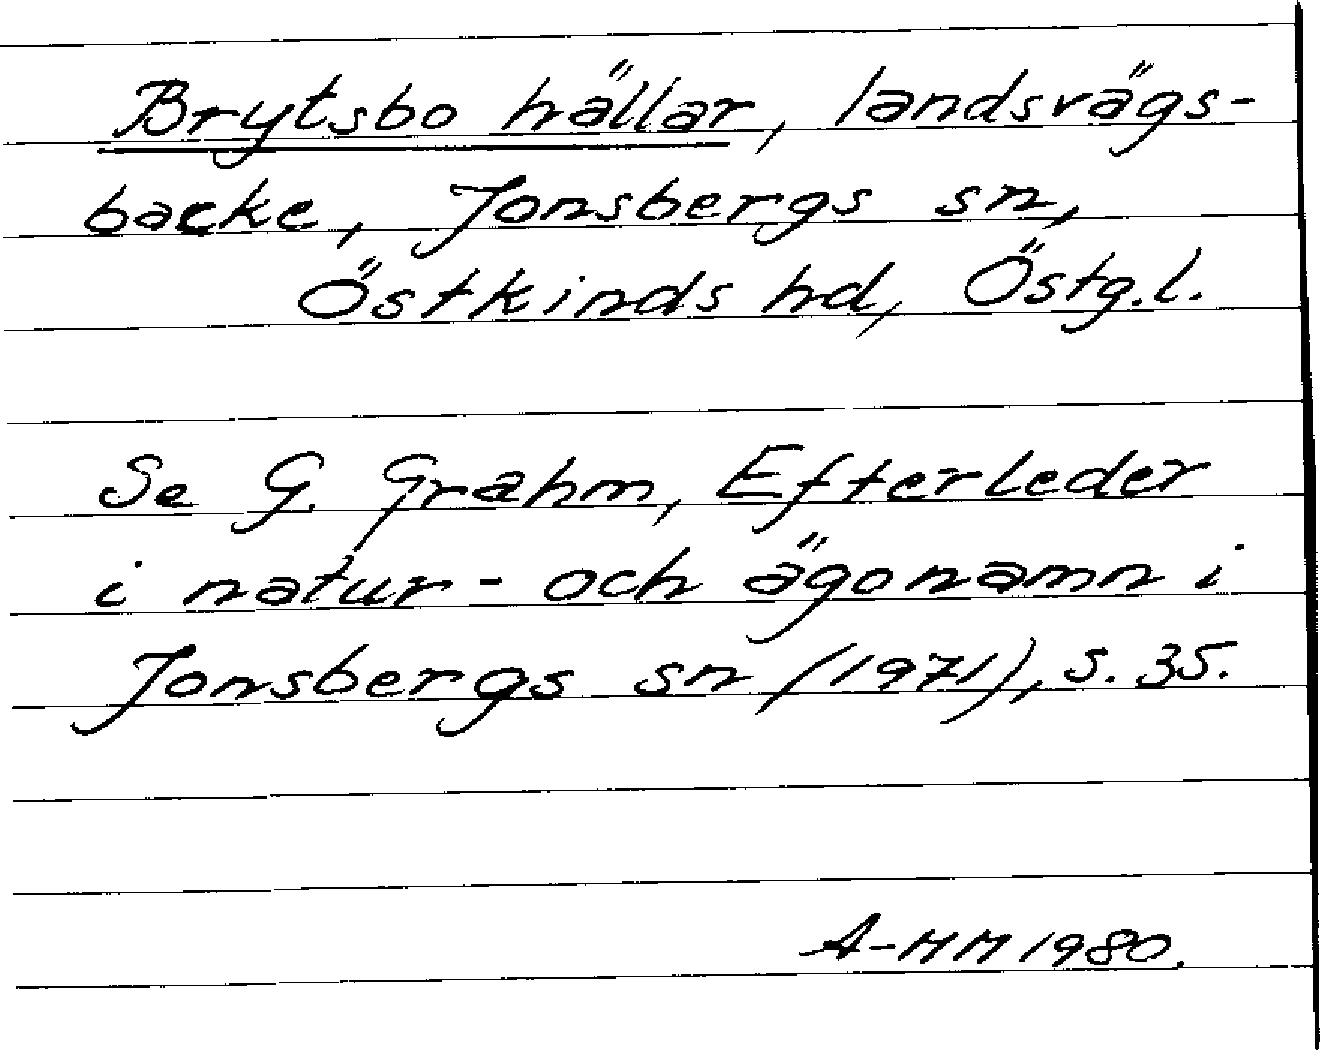 Brytsbo hällar, landsvägs-
backe, Jonsbergs sn,
Östkinds hd, Östg.l.
Se G. Grahm, Efterleder
i natur- och ägonamn i
Jonsbergs sn (1971), s. 35.
A-MM 1980.